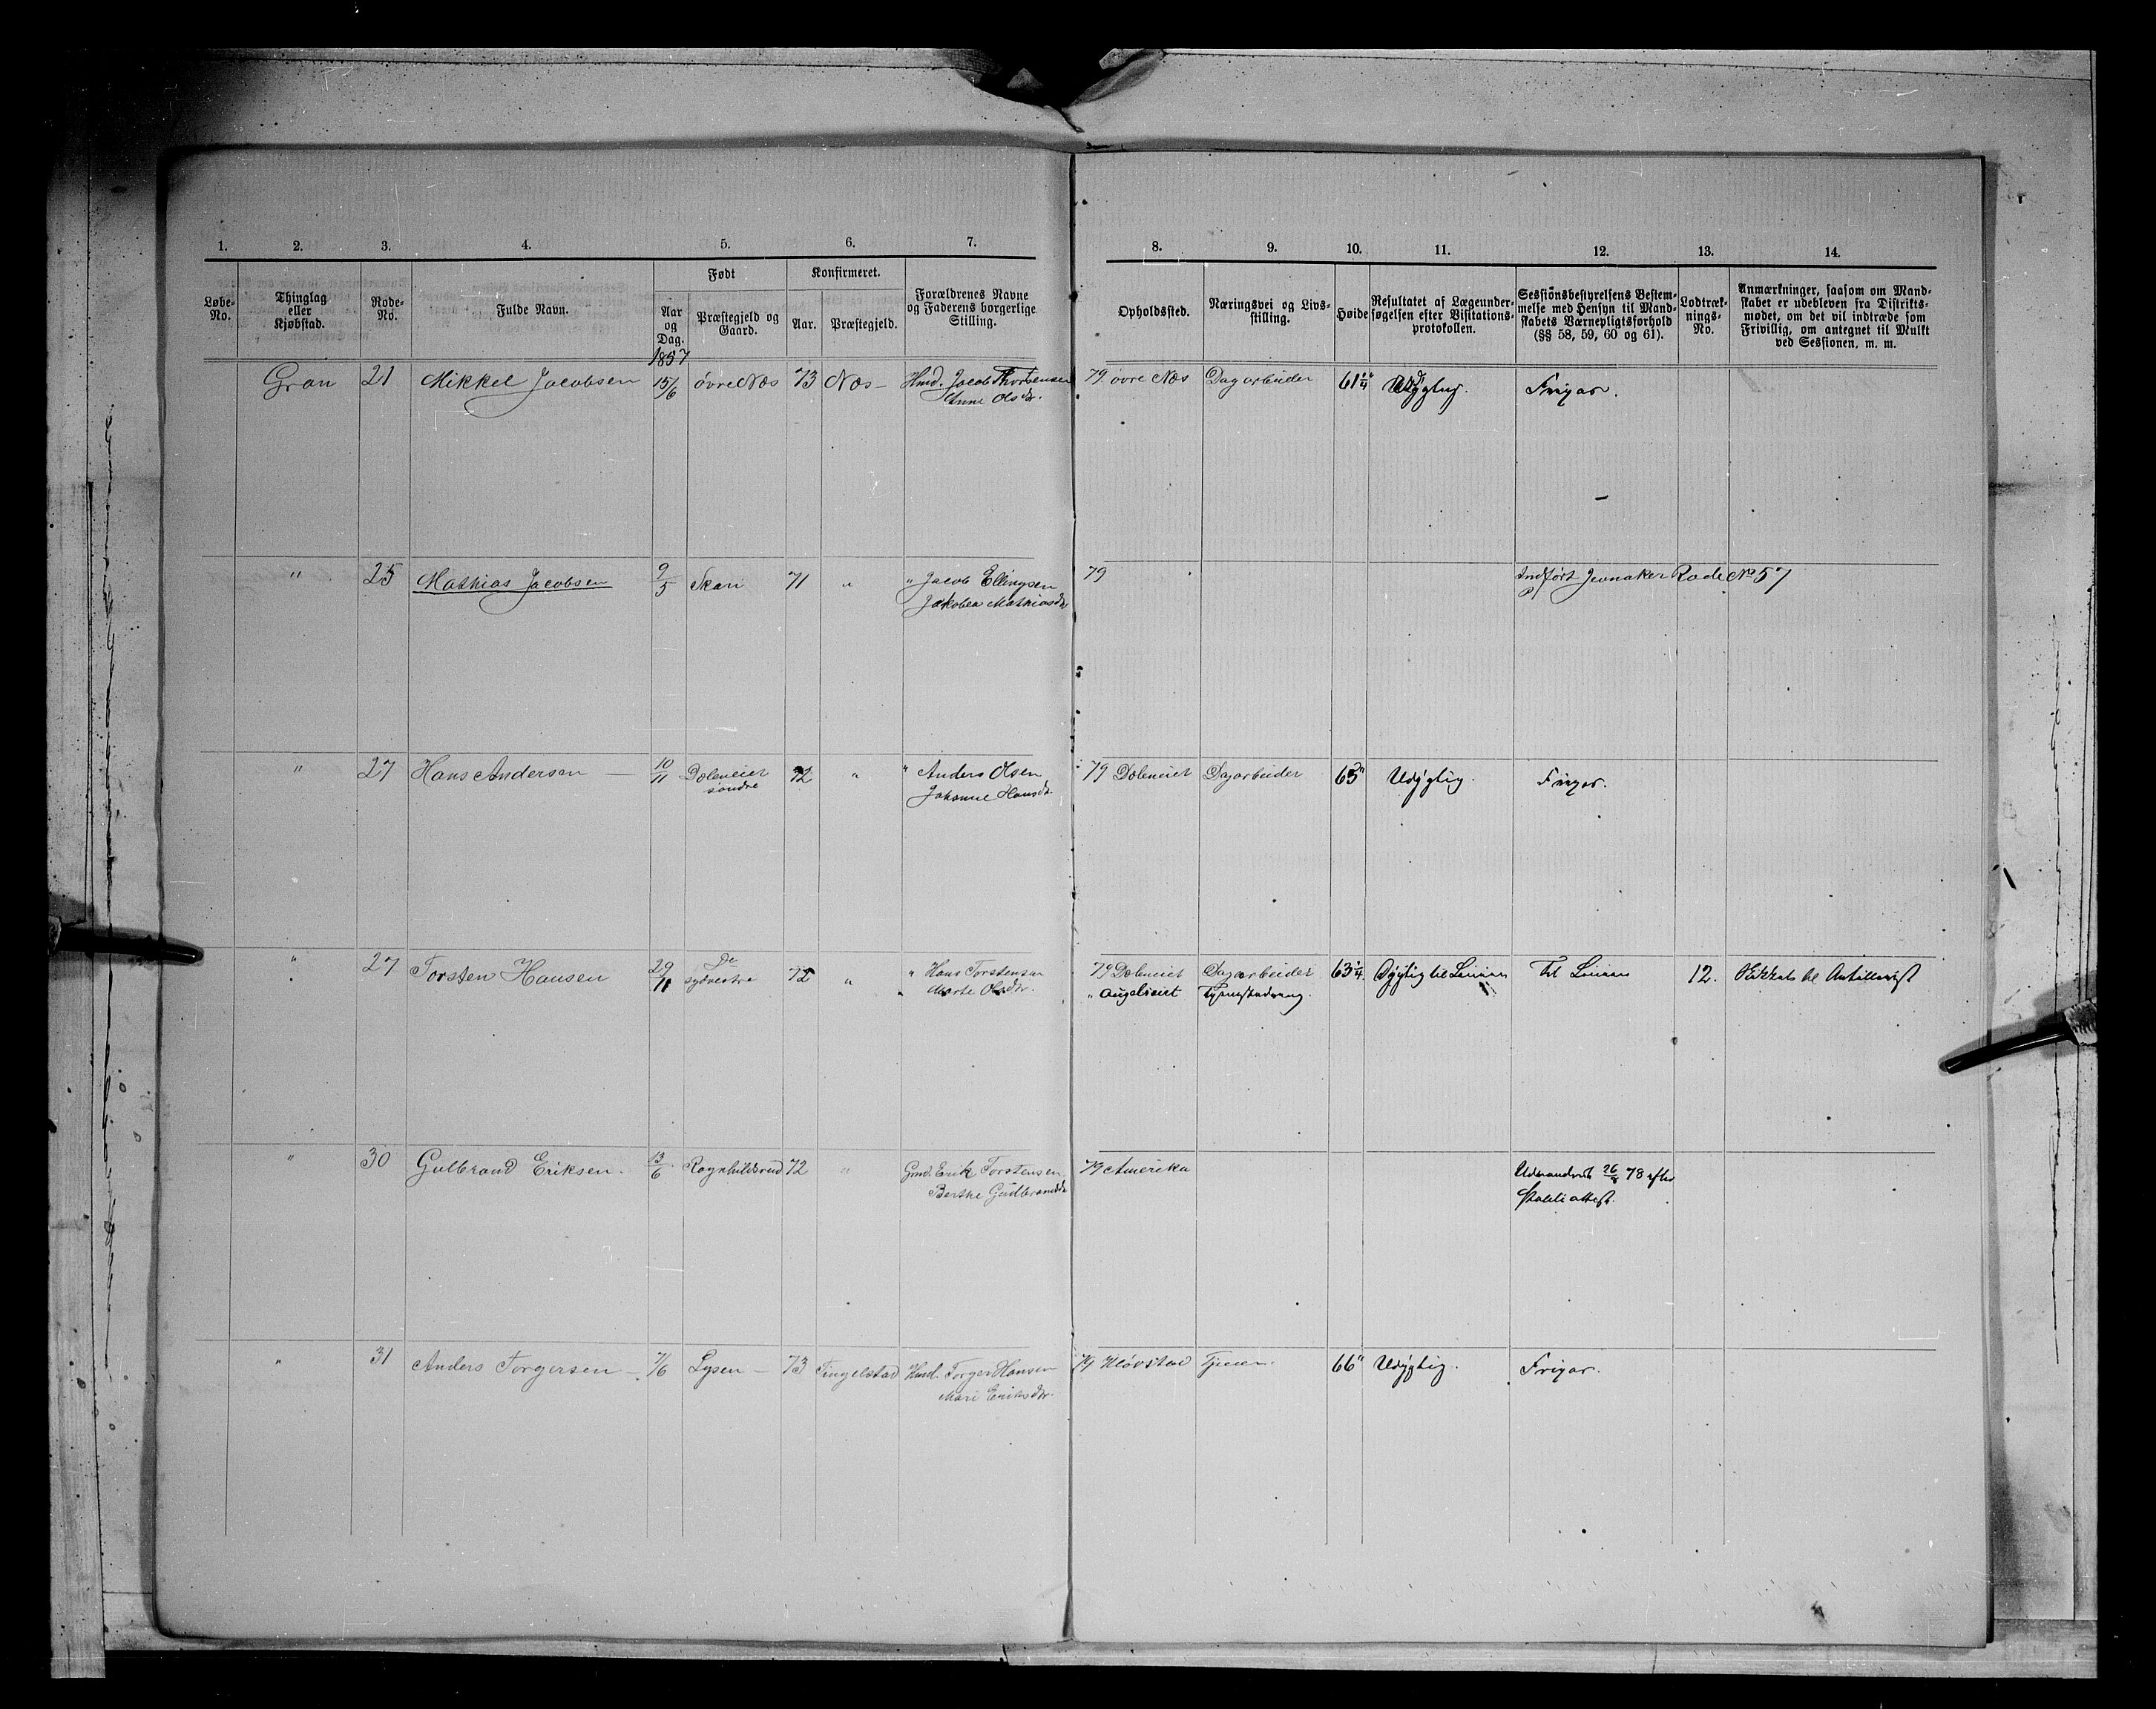 1. 2. 3. 4. 5. 6. 7. 8. 9. 10. 11. 12. 13. 14.
Løbe-No. Thinglag eller Kjøbstad. Rode-No. Fulde Navn. Født Aar og Dag. Præstegjeld og Gaard. Konfirmeret. Aar. Præstegjeld. Forældrenes Navne og Faderens borgerlige Stilling. Opholdssted. Næringsvei og Livsstilling. Høide Resultatet af Lægeundersøgelsen efter Visitationsprotokollen. Sessionsbestyrelsens Bestemmelse med Hensyn til Mandskabets Værnepligtsforhold (§§ 58, 59, 60 og 61). Lodtræknings-No. Anmærkninger, saasom om Mandskabet er udebleven fra Distriktsmodet, om det vil indtræde som Frivillig, om antegnet til Mulkt ved Sessionen, m. m.
1857
Gran 21 Mikkel Jacobsen 15/6 øvre Næs 73 Næs - Hmd. Jacob Thorstensen 79 øvre Næs Dagarbeider 61 1/4" Udygtig. Frigar.
Anne Olsdr.
" 25 Mathias Jacobsen 9/5 Skari 71 " " Jacob Ellingsen 79 Indført Jevnaker Rode No 57
Jakobea Mathiasdr
" 27 Hans Andersen — 10/11 Dæleneiet 72 " " Anders Olsen 79 Dæleneiet Dagarbeider 65" Udygtig. Frigar.
søndre Johanne Hansdr.
" 27 Torsten Hansen 29/11 Do 72 " " Hans Torstensen 79 Dæleneiet Dagarbeider 63 1/4" Dygtig til Linien Til Linien 12. Skikket til Artillerist
sydvestre Marte Olsdr. "
" 30 Gulbrand Eriksen. 13/6 Ragnhildsrud 72 " Gmd. Erik Torstensen 79 Amerika Udvandret 26/4 78 efter
Berthe Gudbrandsdr attest.
" 31 Anders Torgersen - 7/6 Lysen - 73 Tingelstad Hmd. Torger Hansen 79 Kløvstad Tjener. 66" Udygtig. Frigar.
Mari Eriksdr.